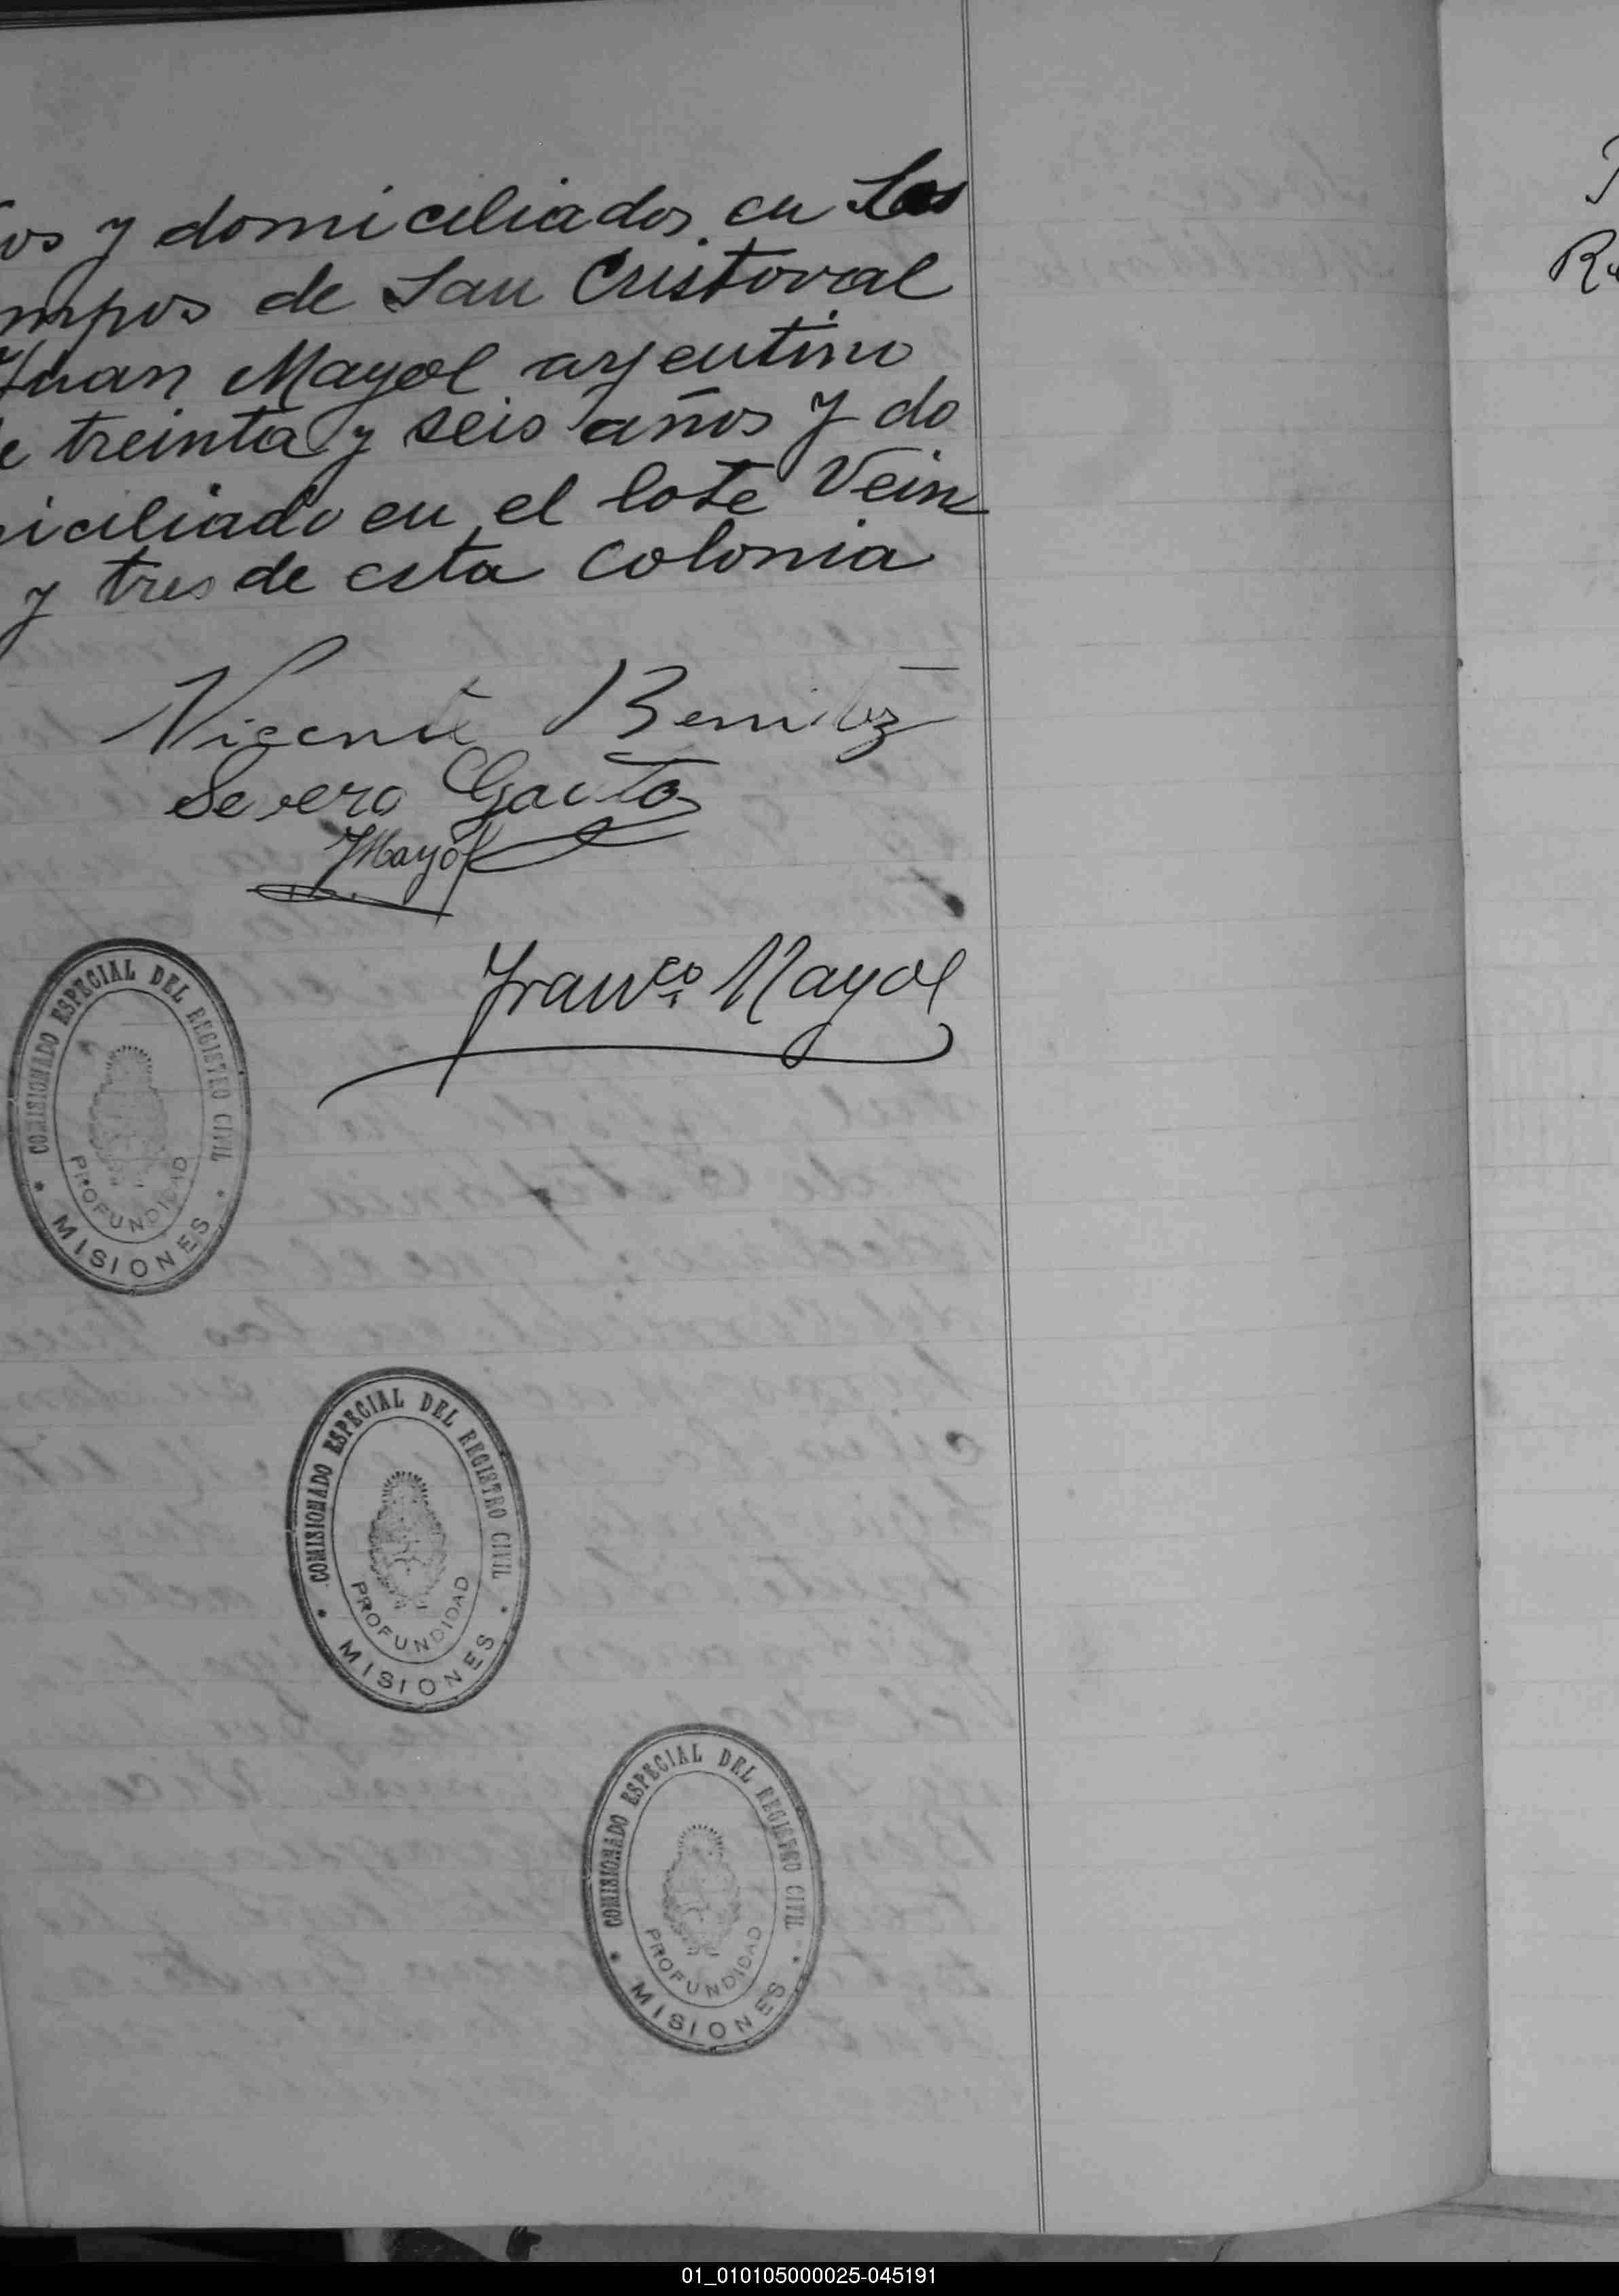 os y domiciliados en Los
mpos de San Cristoval
Juan Mayol argentino
e treinta y seis años y do
iciliado en el lote Vein
y tres de esta colonia
Vicente Benitez
Severo Gauto
JMayol
Franco. Mayol
COMISIONADO ESPECIAL DEL REGISTRO CIVIL
PROFUNDIDAD
MISIONES
COMISIONADO ESPECIAL DEL REGISTRO CIVIL
PROFUNDIDAD
MISIONES
COMISIONADO ESPECIAL DEL REGISTRO CIVIL
PROFUNDIDAD
MISIONES
01_010105000025-045191